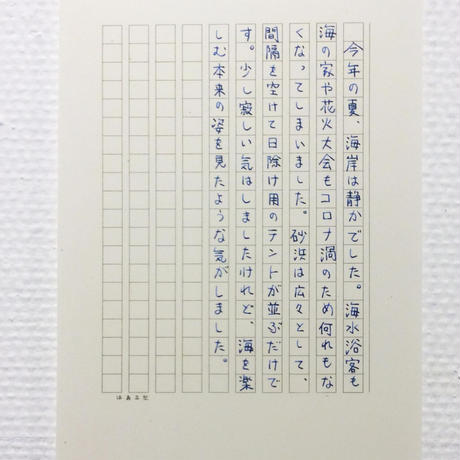 今年の夏、海岸は静かでした。海水浴客も
海の家や花火大会もコロナ渦のため何れもな
くなってしまいました。砂浜は広々として、
間隔を空けて日除け用のテントが並ぶだけで
す。少し寂しい気はしましたけれど、海を楽
しむ本来の姿を見たような気がしました。